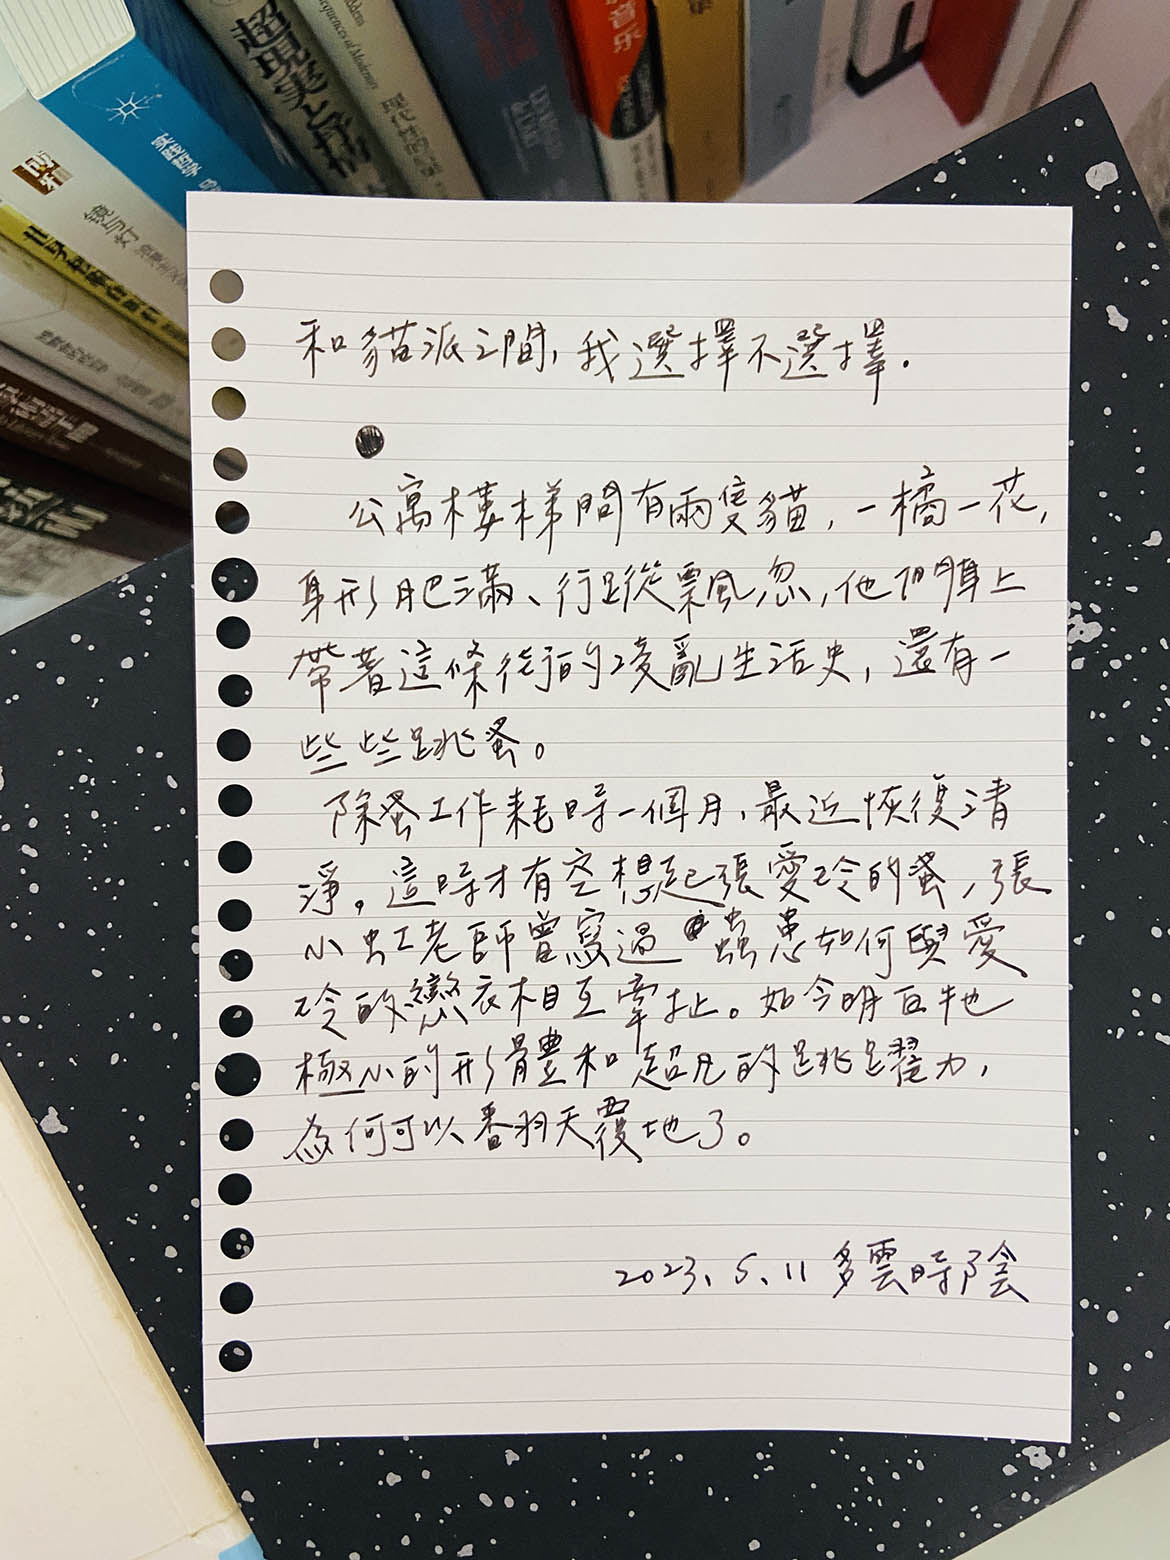 超現実と子情
现代性的后果
Consequences of Modernity
音乐
实践哲学
镜与灯
和貓派之間，我選擇不選擇．
公寓樓梯間有兩隻貓，一橘一花，
身形肥滿、行蹤飄忽，他們身上
帶著這條街的凌亂生活史，還有一
些些跳蚤。
除蚤工作耗時一個月，最近恢復清
淨。這時才有空想起張愛玲的蚤，張
小虹老師曾寫過 蟲患如何與愛
玲的戀衣相互牽扯。如今明白牠
極小的形體和超凡的跳躍力，
為何可以番羽天覆地了。
2023、5、11 多雲時陰